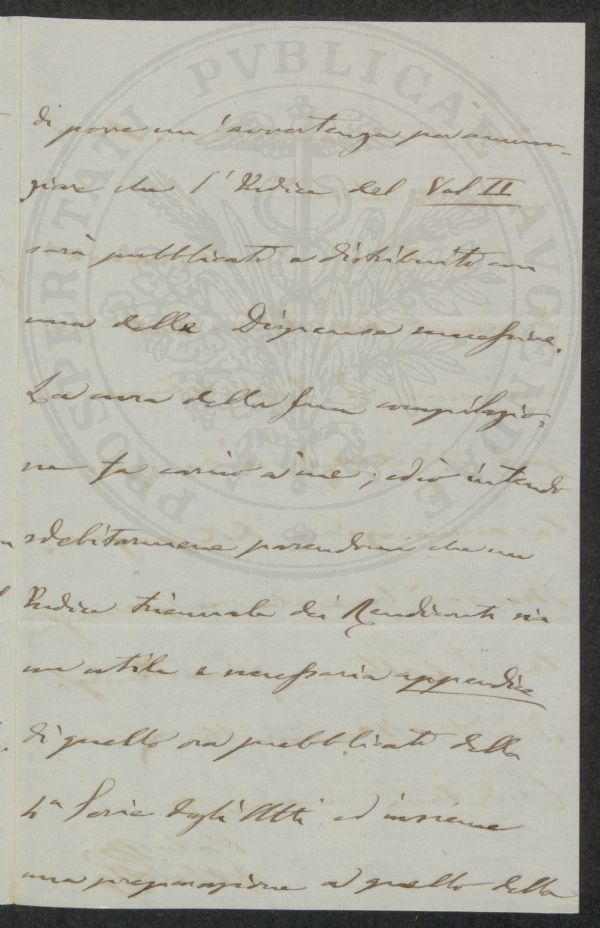 di porre un'avvertenza per annun-
ziare che l'Indice del Vol II
sarà pubblicato e distribuito con
una delle Dispense successive.
La cura della sua compilazio-
ne fa carico a me; ed io intendo
sdebitarmene parendomi che un
Indice triennale dei Rendiconti sia
un utile e necessaria appendice
di quello ora pubblicato della
4ª Serie degli Atti ed insieme
una preparazione a quello della
PROSPERITATI PVBLICAE AVGENDAE